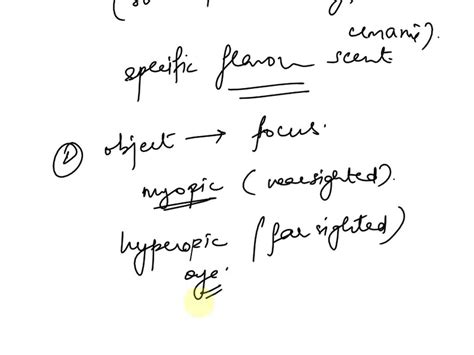 specific flavour scent
① object → focus.
myopic (nearsighted).
hyperopic (far sighted)
eye.